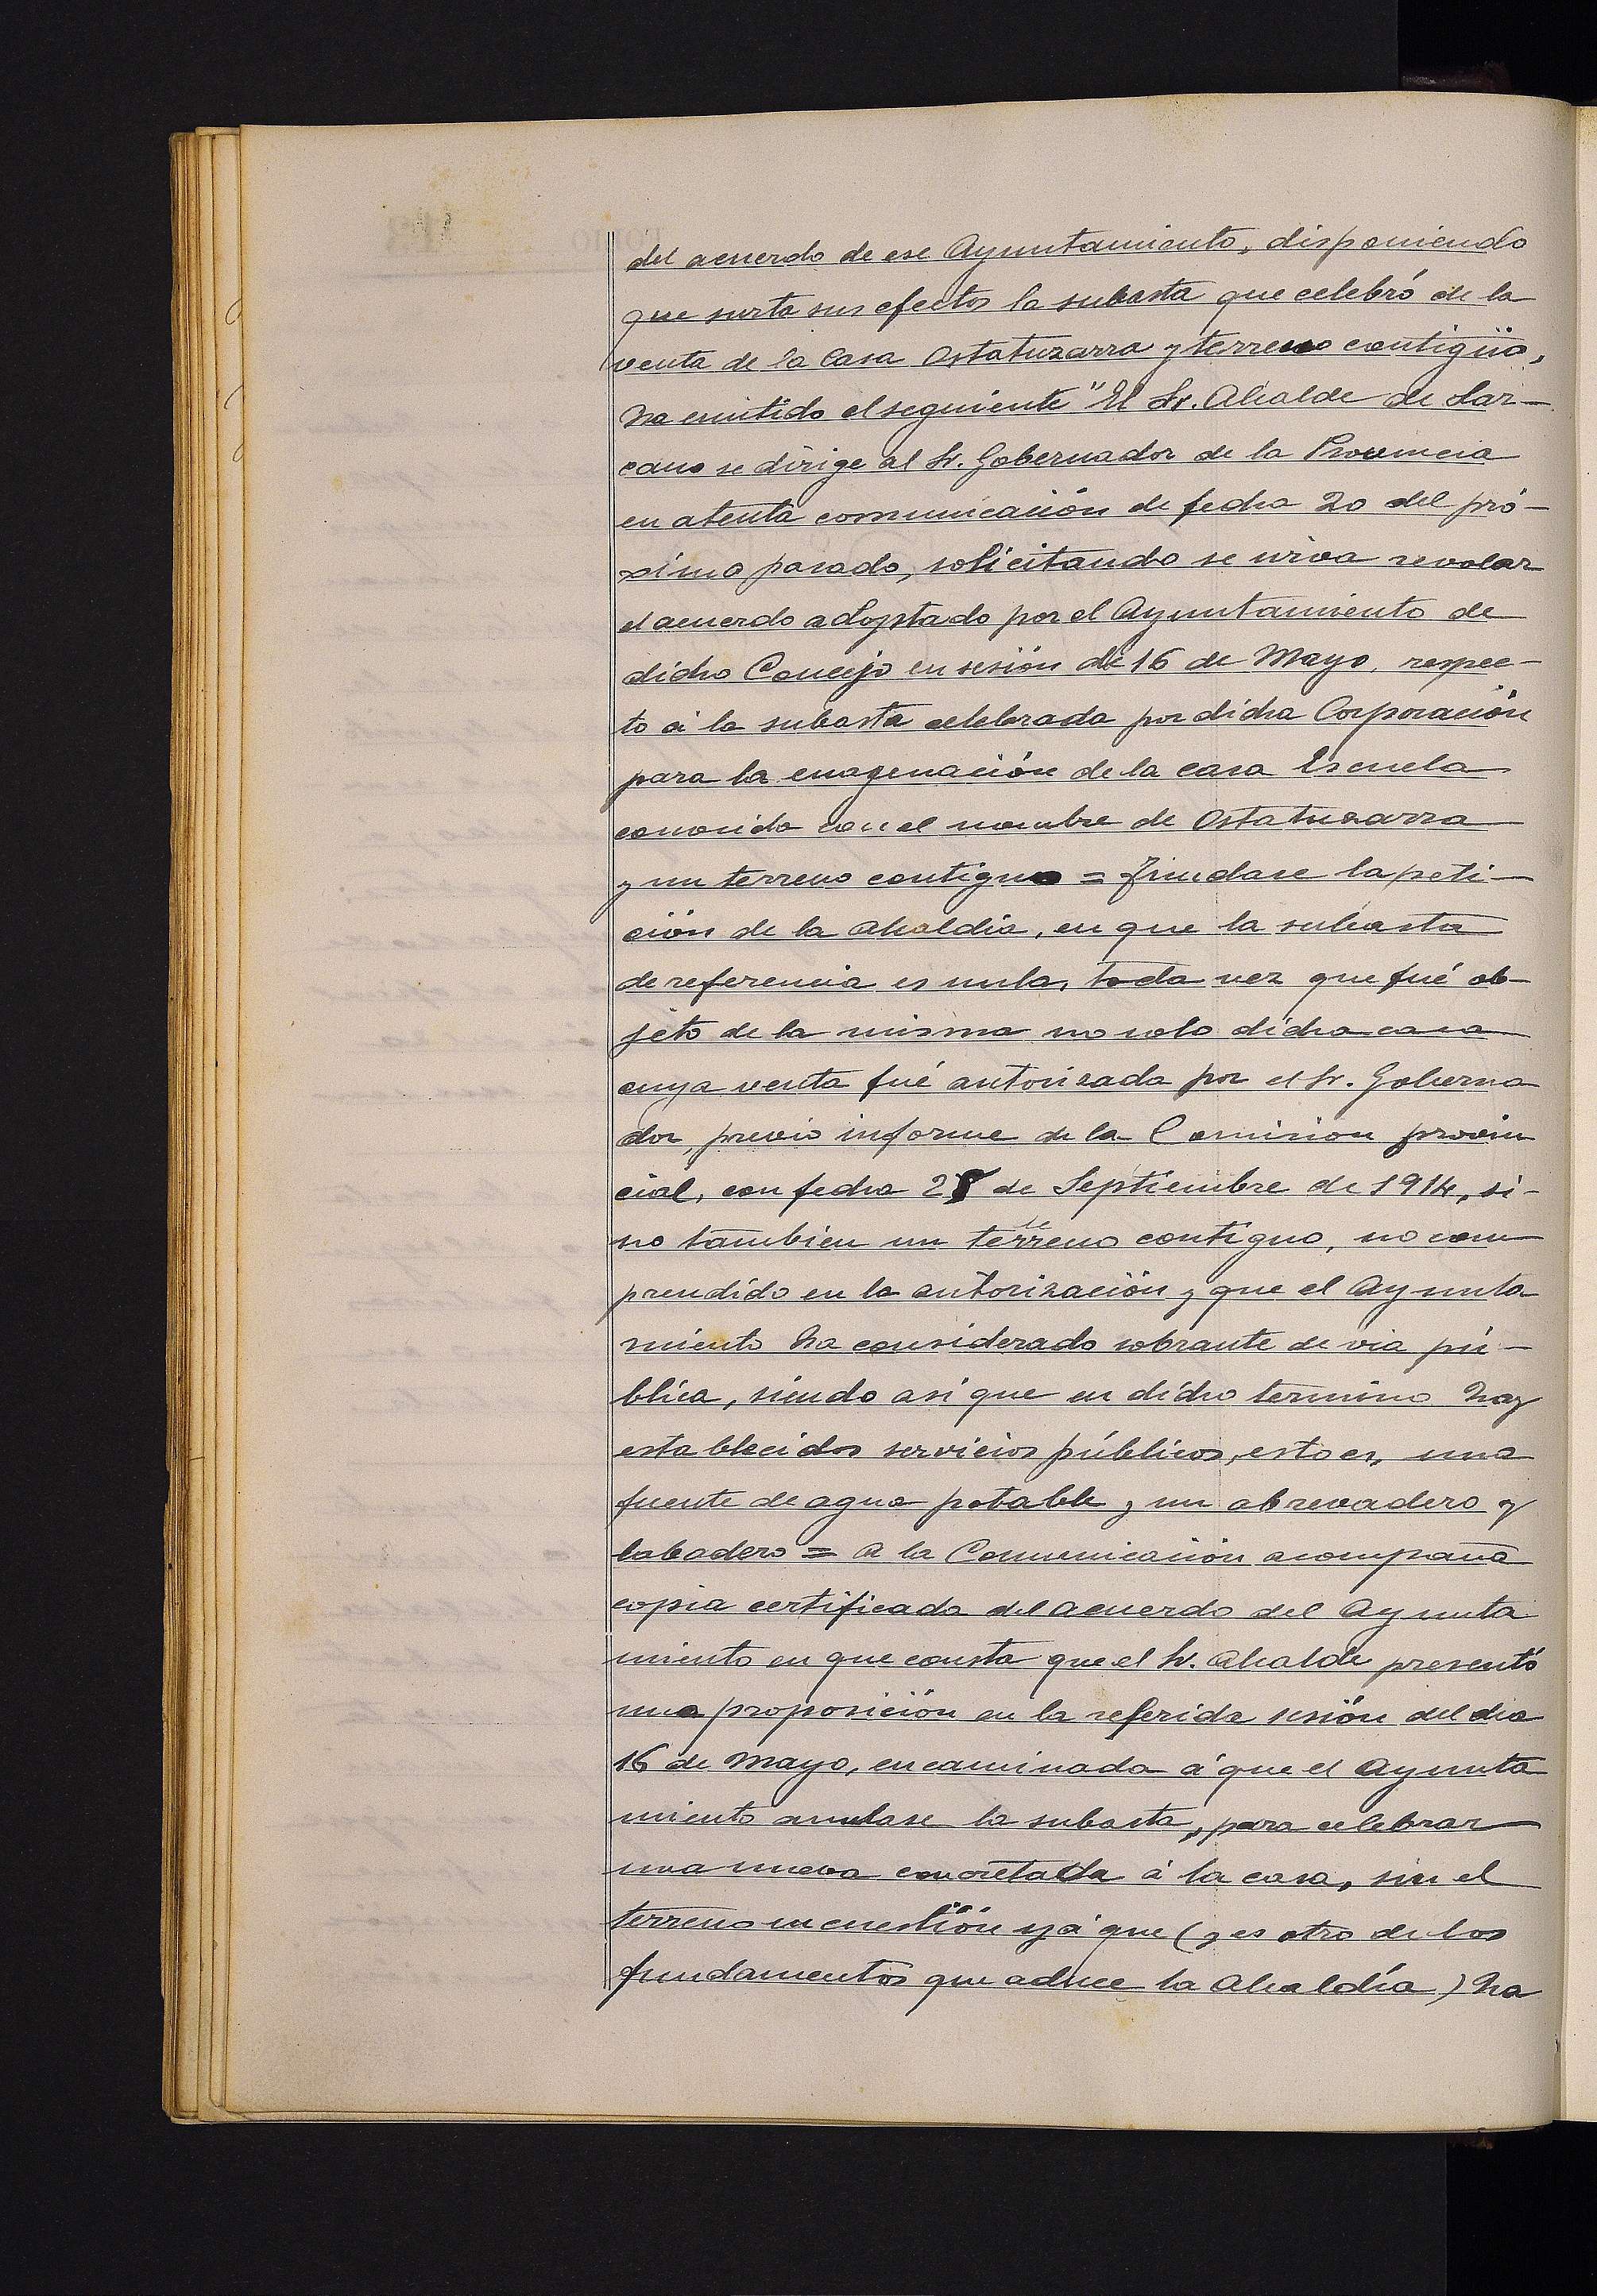 del acuerdo de ese Ayuntamiento, disponiendo
que surta sus efectos la subasta que celebró de la
venta de la Casa Ostatuzarra y terreno contigüo,
ha emitido el seguiente "El Sr. Alcalde de Laz-
cano se dirige al Sr. Gobernador de la Provincia
en atenta comunicación de fecha 20 del pró-
ximo pasado, solicitando se sirva revocar
el acuerdo adoptado por el Ayuntamiento de
dicho Concejo en sesión de 16 de Mayo, respec-
to á la subasta celebrada por dicha Corporación
para la enagenación de la casa Escuela
conocida con el nombre de Ostatuzarra
y un terreno contiguo = Fúndase la peti-
ción de la alcaldia, en que la subasta
de referencia es nula, toda vez que fué ob-
jeto de la misma no solo dicha casa
cuya venta fué autorizada por el Sr. Goberna
dor, previo informe de la Comision provin
cial, con fecha 28 de Septiembre de 1914, si-
no tambien un terreno contiguo, no com
prendido en la autorización y que el Ayunta
miento ha considerado sobrante de via pú-
blica, siendo asi que en dicho termino hay
establecidos servicios públicos, esto es, una
fuente de agua potable y un abrevadero y
labadero = A la Comunicación acompaña
copia certificada del acuerdo del Ayunta
miento en que consta que el Sr. Alcalde presentó
una proposición en la referida sesión del dia
16 de Mayo, encaminada á que el Ayunta
miento anulase la subasta, para celebrar
una nueva concretada á la casa, sin el
terreno en cuestión yá que (y es otro de los
fundamentos que aduce la Alcaldía) ha